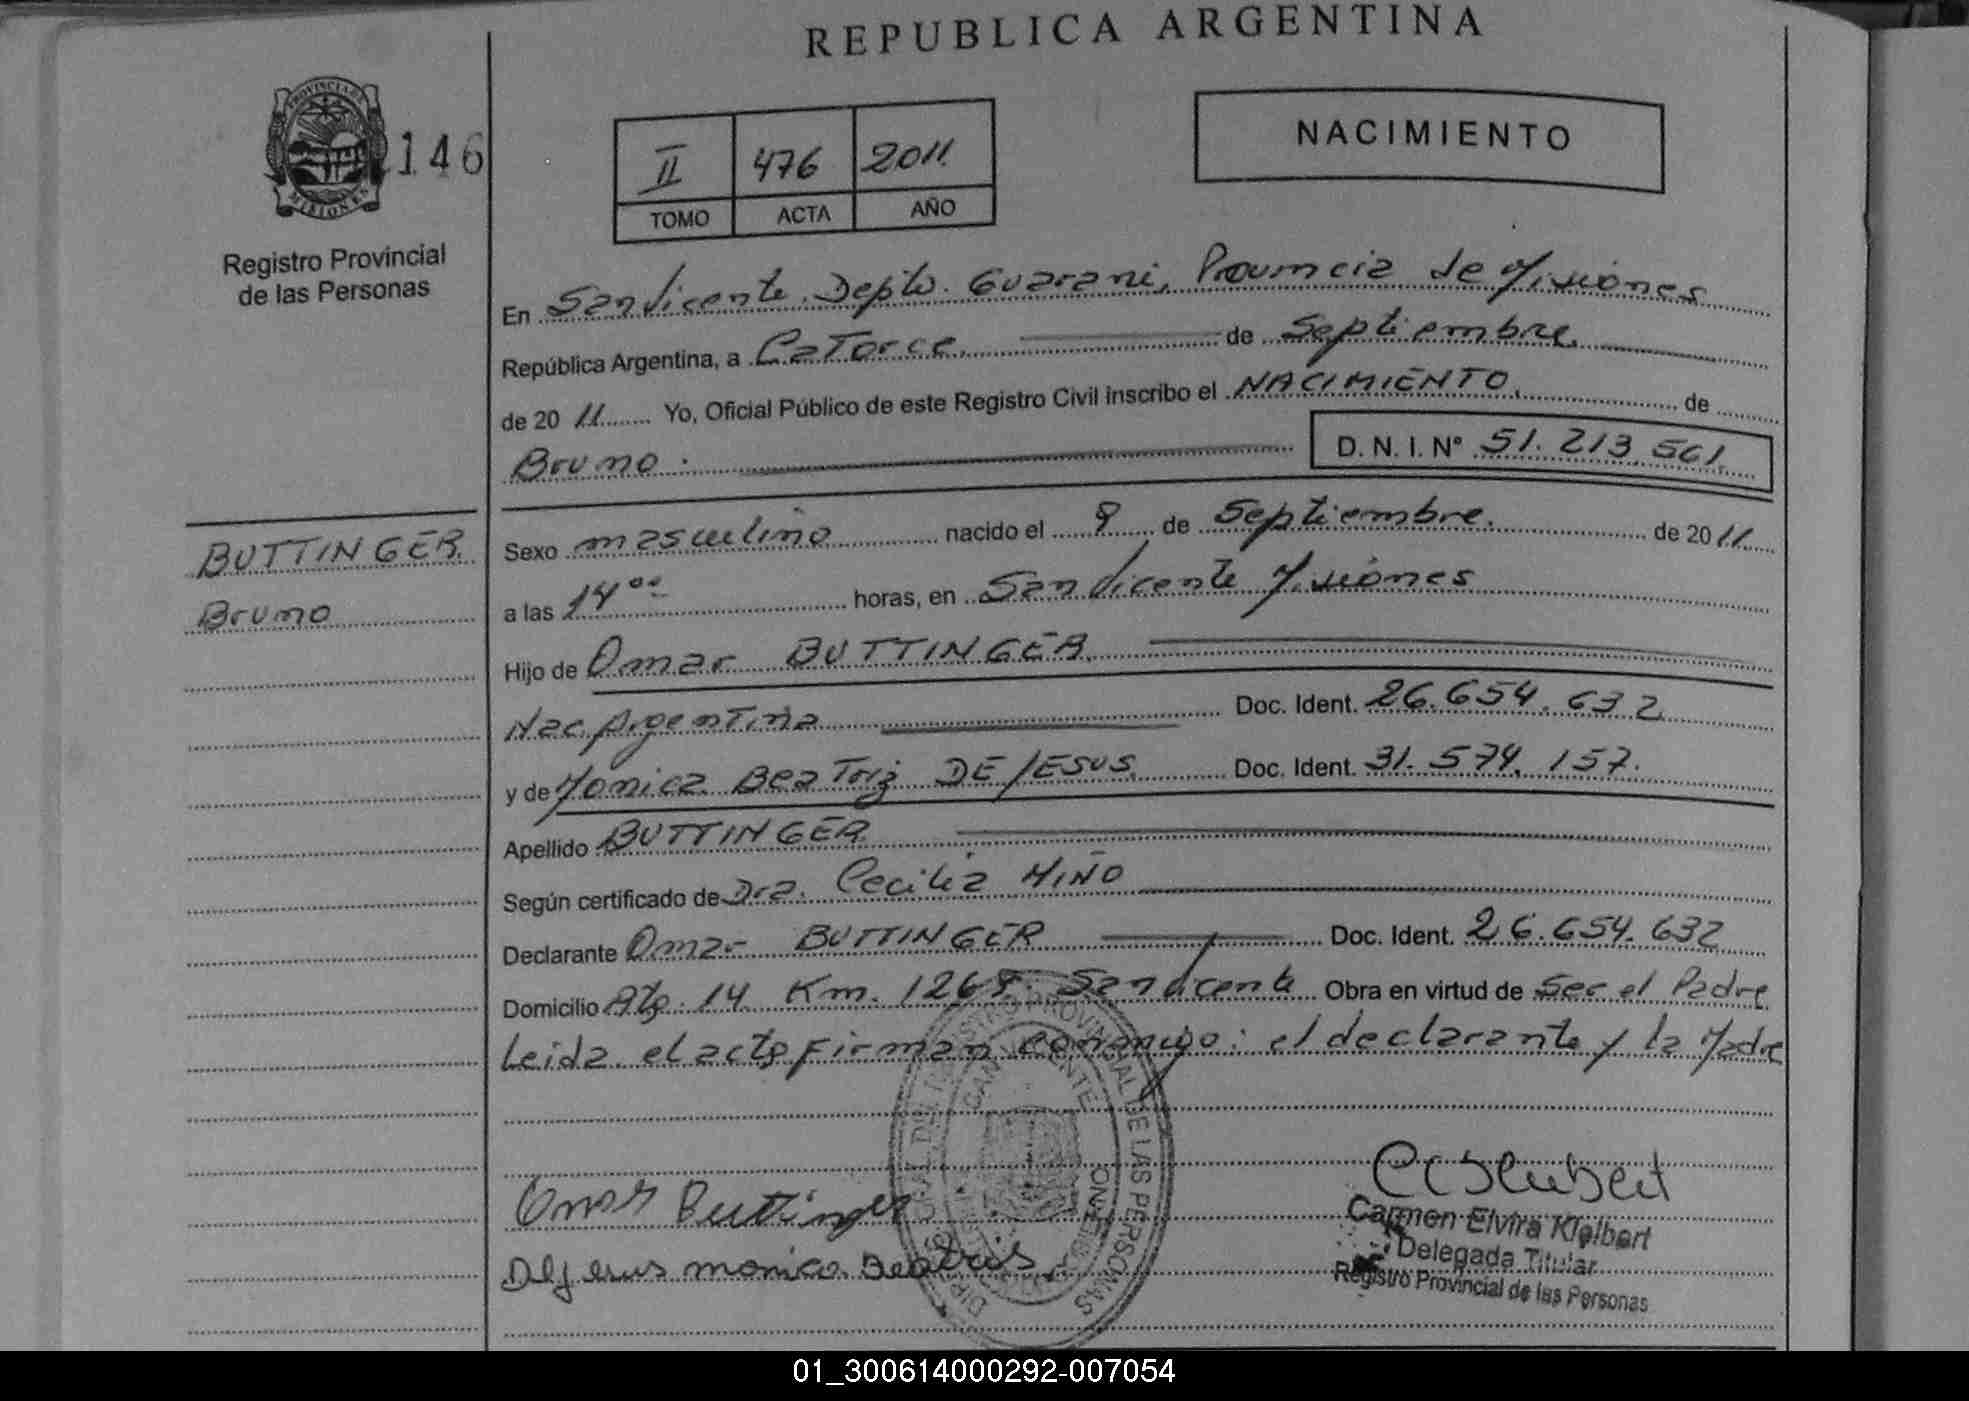 REPUBLICA ARGENTINA
PROVINCIA DE
MISIONES
146
Registro Provincial
de las Personas
II 476 2011
TOMO ACTA AÑO
NACIMIENTO
En San Vicente, Depto. Guarani, Provincia de Misiones
República Argentina, a Catorce de Septiembre
de 20 11 Yo, Oficial Público de este Registro Civil inscribo el NACIMIENTO de
Bruno D. N. I. N° 51.213.561
BUTTINGER
Bruno
Sexo masculino nacido el 8 de Septiembre de 20 11
a las 14 oo horas, en San Vicente Misiones
Hijo de Omar BUTTINGER
Nac. Argentina Doc. Ident. 26.654.632
y de Monica Beatriz DE JESUS Doc. Ident. 31.574.157.
Apellido BUTTINGER
Según certificado de Dra. Cecilia MIÑO
Declarante Omar BUTTINGER Doc. Ident. 26.654.632
Domicilio Km. 1268 San Vicente Obra en virtud de Ser el Padre
Leida el acta Firman conmigo: el declarante y la Madre
REGISTRO PROVINCIAL DE LAS PERSONAS
SAN VICENTE
Omar Buttinger
Dejesus monica Beatris
Carmen Elvira Kielbert
Delegada Titular
Registro Provincial de las Personas
01_300614000292-007054